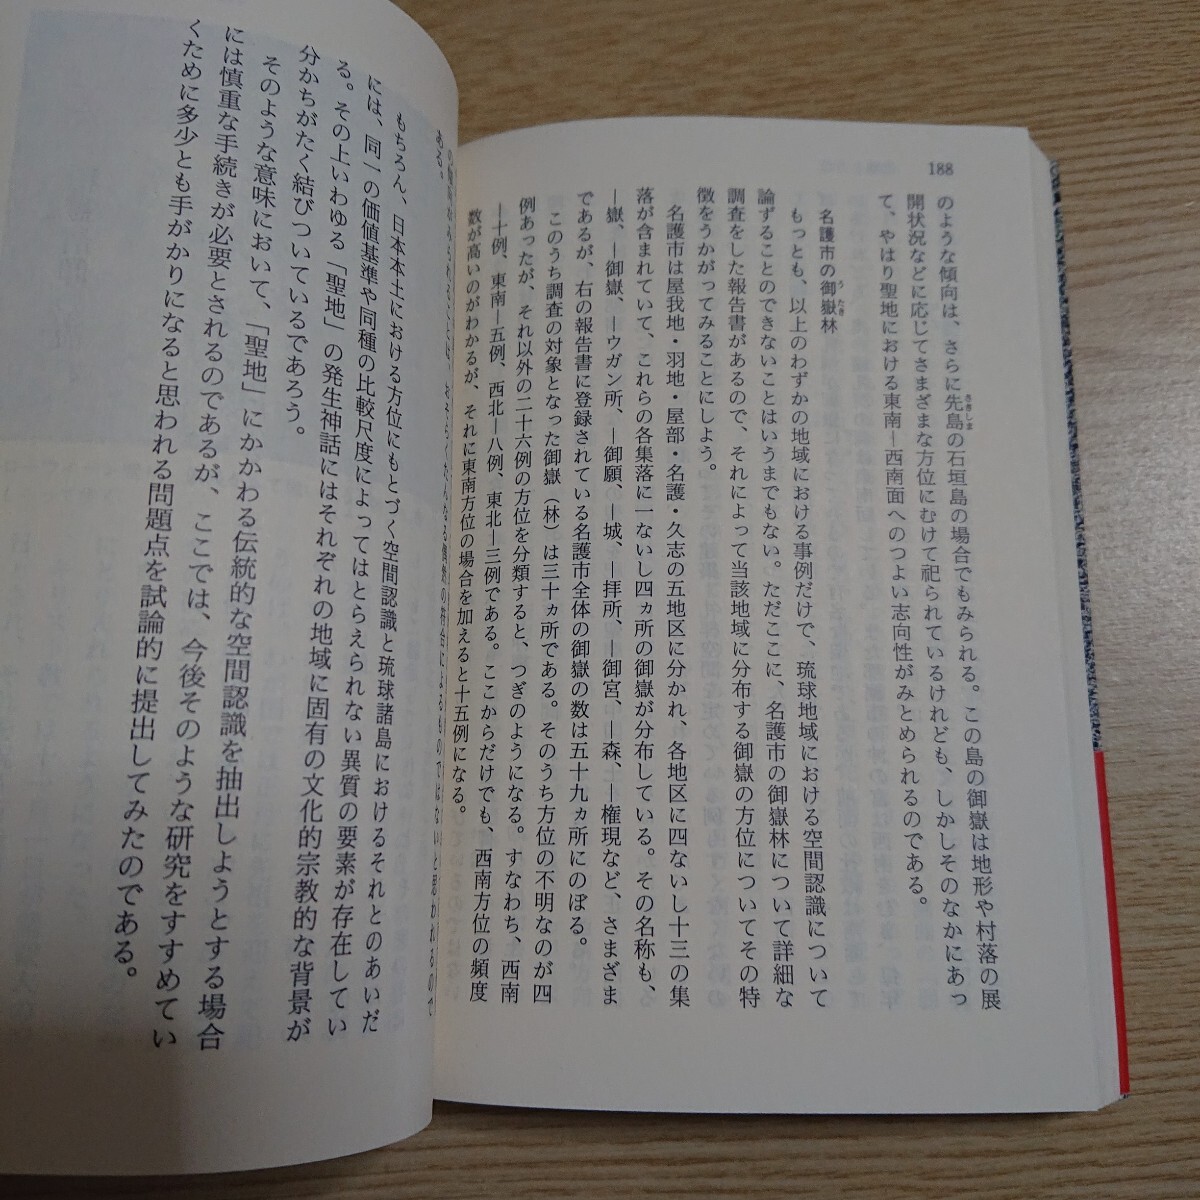 188
のような傾向は、さらに先島の石垣島の場合でもみられる。この島の御嶽は地形や村落の展
さきしま
開状況などに応じてさまざまな方位にむけて祀られているけれども、しかしそのなかにあっ
て、やはり聖地における東南―西南面へのつよい志向性がみとめられるのである。
名護市の御嶽林
うたき
もっとも、以上のわずかの地域における事例だけで、琉球地域における空間認識について
論ずることのできないことはいうまでもない。ただここに、名護市の御嶽林について詳細な
調査をした報告書があるので、それによって当該地域に分布する御嶽の方位についてその特
徴をうかがってみることにしよう。
名護市は屋我地・羽地・屋部・名護・久志の五地区に分かれ、各地区に四ないし十三の集
落が含まれていて、これらの各集落に一ないし四ヵ所の御嶽が分布している。その名称も、
―嶽、―御嶽、―ウガン所、―御願、―城、―拝所、―御宮、―森、―権現など、さまざま
であるが、右の報告書に登録されている名護市全体の御嶽の数は五十九ヵ所にのぼる。
このうち調査の対象となった御嶽（林）は三十ヵ所である。そのうち方位の不明なのが四
例あったが、それ以外の二十六例の方位を分類すると、つぎのようになる。すなわち、西南
―十例、東南―五例、西北―八例、東北―三例である。ここからだけでも、西南方位の頻度
数が高いのがわかるが、それに東南方位の場合を加えると十五例になる。
おそらくたんなる偶然の符合によるものではないと思われるので
ある。
もちろん、日本本土における方位にもとづく空間認識と琉球諸島におけるそれとのあいだ
には、同一の価値基準や同種の比較尺度によってはとらえられない異質の要素が存在してい
る。その上いわゆる「聖地」の発生神話にはそれぞれの地域に固有の文化的宗教的な背景が
分かちがたく結びついているであろう。
そのような意味において、「聖地」にかかわる伝統的な空間認識を抽出しようとする場合
には慎重な手続きが必要とされるのであるが、ここでは、今後そのような研究をすすめてい
くために多少とも手がかりになると思われる問題点を試論的に提出してみたのである。